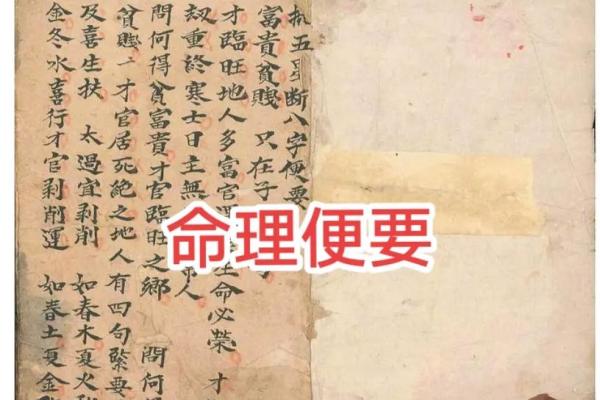 五 斷八字便要
富貴貧賤 只在子
才臨旺地人多富官 生命必榮 才
刼重終寒士日主無 人
問何得貧富貴才官臨旺之鄉 問何
貧賤 才官居死絶之地人有四句緊要
及喜生扶 太過宜剥削 如春木夏火
金冬水喜行才官剥削運 如春土夏金
命理便要